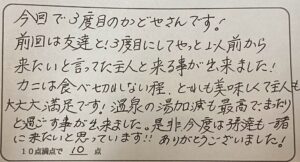 今回で3度目のかどやさんです!
前回は友達と!3度目にしてやっと2人前から
来たいと言ってた主人と来る事が出来ました!
カニは食べ切れない程、とかも美味しくて主人も
大大大満足です!温泉の湯加減も最高でまったり
と過ごす事が出来ました。是非今度は孫達も一緒
に来たいと思っています!!ありがとうございました!
10点満点で 10 点